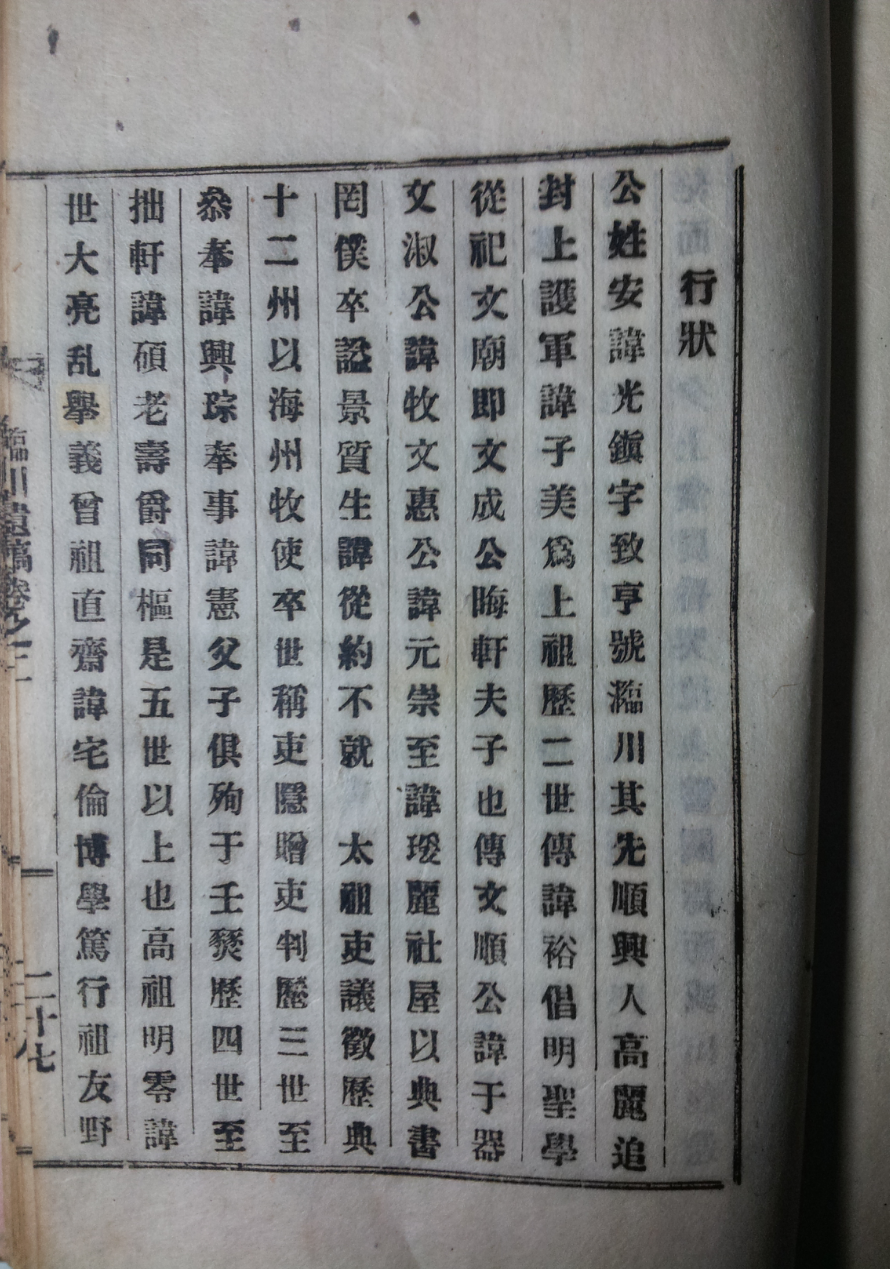 行狀
公姓安諱光鎭字致亨號灀川其先順興人高麗追
封上護軍諱子美爲上祖歷二世傳諱裕倡明聖學
從祀文廟即文成公晦軒夫子也傳文順公諱于器
文淑公諱牧文惠公諱元崇至諱瑗麗社屋以典書
罔僕卒諡景質生諱從約不就 太祖吏議徵歷典
十二州以海州牧使卒世稱吏隱贈吏判歷三世至
叅奉諱興琮奉事諱憲父子俱殉于壬燹歷四世至
拙軒諱碩老壽爵同樞是五世以上也高祖明零諱
世大亮乱擧義曾祖直齋諱宅倫博學篤行祖友野
川遺稿卷之二
二十七